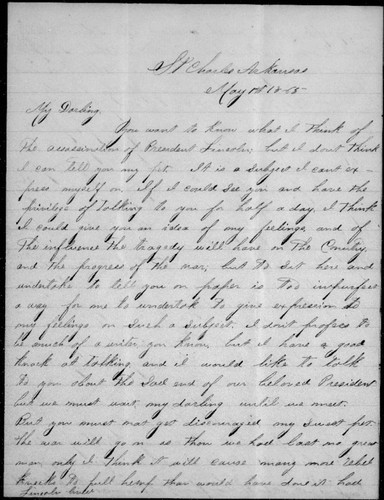 St Charles Arkansas
May 1st 1865
My Darling,
You want to know what I think of
the assasination of President Lincoln, but I dont think
I can tell you my Pet. It is a subject I cant ex-
press myself on. If I could see you and have the
privilege of talking to you for half a day, I think
I could give you an idea of my feelings, and of
the influence the tragedy will have on the Country,
and the progress of the war, but to set here and
undertake to tell you on paper is too imperfect
a way for me to undertak to give expression to
my feelings on such a subject. I dont profess to
be much of a writer you know, but I have a good
knack at talking and I would like to talk
to you about the sad end of our beloved President
but we must wait, my darling until we meet.
But you must not get discouraged my sweet pet.
the war will go on as thou we had lost no great
man, only I think it will cause many more rebel
to fall than would have done it had
Lincoln